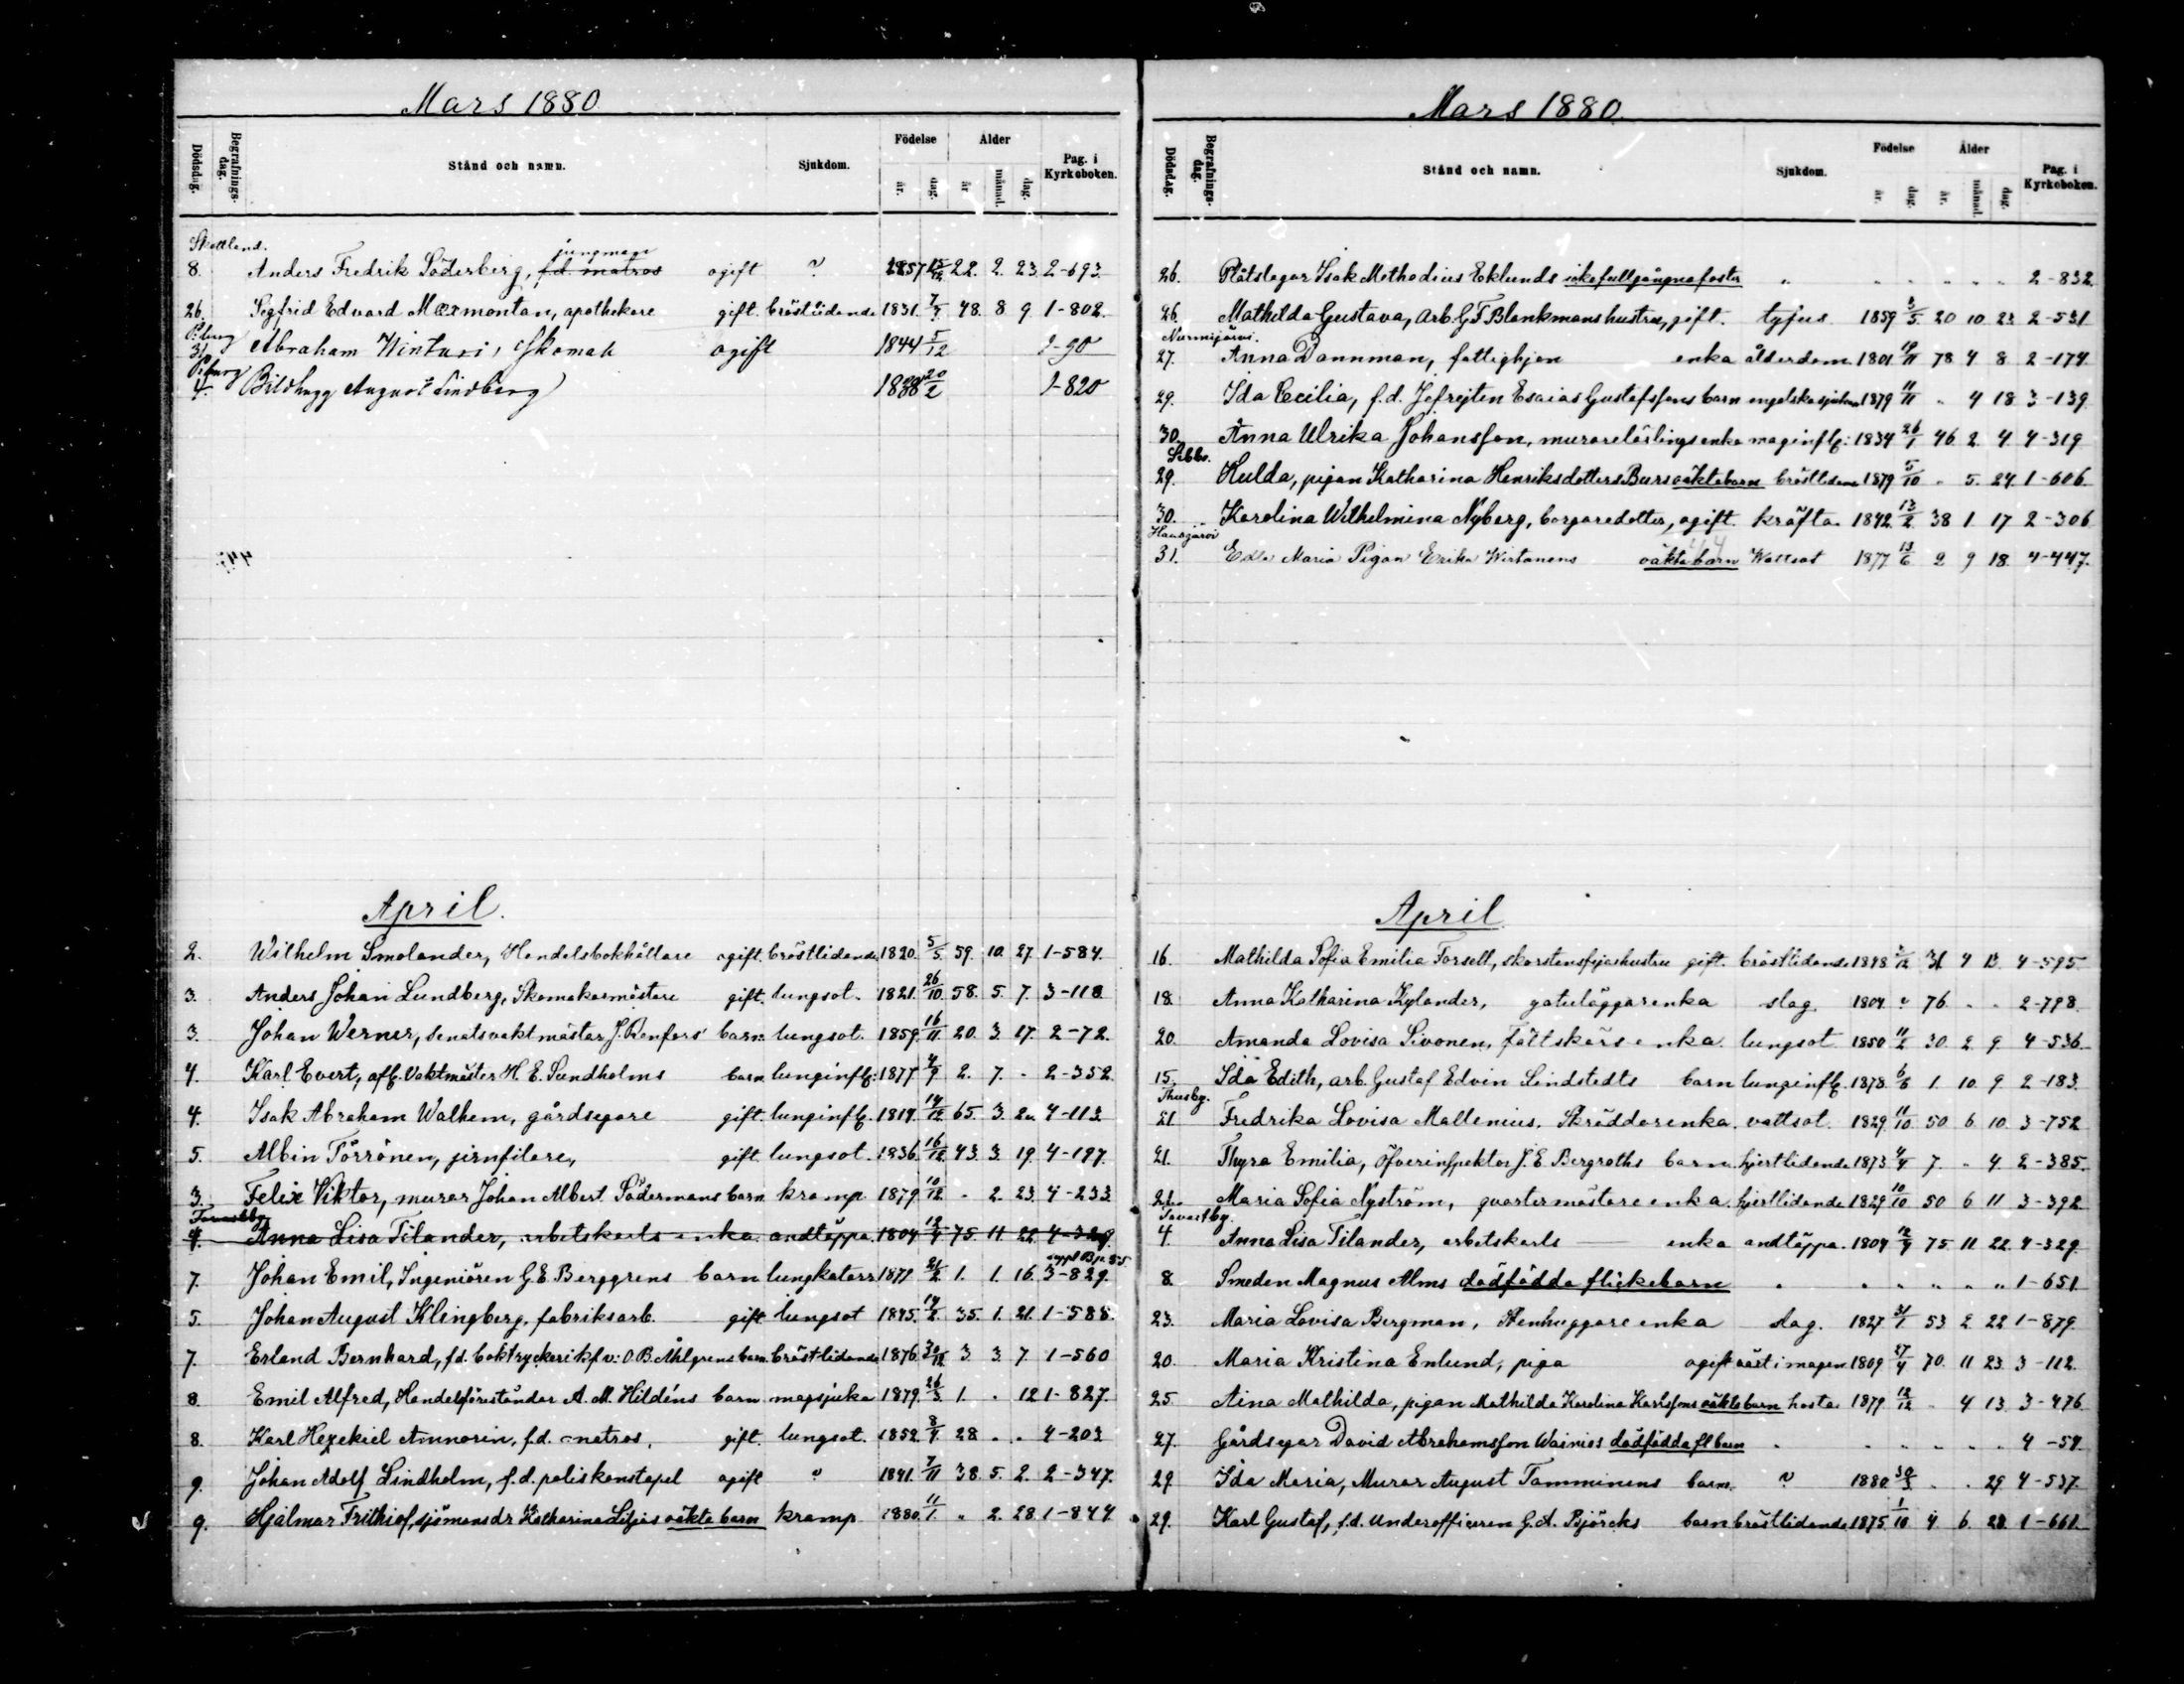 Mars 1880
Dödsdag. Begrafnings-dag. Stånd och namn. Sjukdom. Födelse år. dag. Ålder år månad. dag. Pag. i Kyrkoboken.
Skottland.
jungman
8. Anders Fredrik Söderberg, f.d. matros ogift ? 1857 15/12 22. 2. 23. 2-693.
26. Segfrid Edvard Marmontan, apothekare gift. bröstlidande 1831. 7/7 48. 8 9 1-802.
P:burg
31 Abraham Winturi, Skomak ogift 1844 5/12 1-90
P:burg
4. Bildhugg August Lindberg 1838 20/2 1-820
April.
2. Wilhelm Smolander, Handelsbokhållare ogift. bröstlidande 1820. 5/5 59. 10. 27. 1-584.
3. Anders Johan Lundberg, Skomakaremästare gift. lungsot. 1821. 26/10. 58. 5. 7. 3-118
3. Johan Werner, Senatsvaktmästar J. Renfors' barn lungsot. 1859. 16/11 20. 3. 17. 2-72.
4. Karl Evert, aff. Vaktmäster H. E. Sundholms barn lunginfl: 1877 4/9 2. 7. - 2-352
4. Isak Abraham Walhem, gårdsegare gift. lunginfl. 1814. 14/12 65. 3. 20. 4-113
5. Albin Törrönen, jernfilare, gift. lungsot. 1836. 16/12 43. 3. 19. 4-197.
3. Felix Viktor, murar Johan Albert Södermans barn kramp 1879 10/12 - 2. 23. 4-233
Tavastby
4. Anna Lisa Tilander, arbetskarls enka andtäppa. 1804 12/4 75. 11 22 4-329.
suppl B p. 85
7. Johan Emil, Ingeniören G. E. Berggrens barn lungkatarr 1879 21/2 1. 1. 16. 3-829.
5. Johan August Klingberg, fabriksarb. gift lungsot 1845. 14/2. 35. 1. 21. 1-588.
7. Erland Bernhard, f.d. boktryckerikf. v: O. B. Åhlgrens barn bröstlidande 1876 30/12 3 3 7 1-560
8. Emil Alfred, Handelsföreståndar A. M. Hildéns barn magsjuka 1879. 26/3. 1. . 12 1-827.
8. Karl Hezekiel Amnorin, f.d. matros, gift. lungsot. 1852. 8/4 28 . . 4-203
9. Johan Adolf Lindholm, f.d. poliskonstapel ogift ? 1841. 7/11 38. 5. 2. 2-347.
9. Hjalmar Frithiof, sjömansdr Katharina Liljas oäkta barn kramp 1880. 11/1 " 2. 28. 1-844
Mars 1880.
Dödsdag. Begrafnings-dag. Stånd och namn. Sjukdom. Födelse år. dag. Ålder år. månad. dag. Pag. i Kyrkoboken.
26. Plåtslagar Isak Methodius Eklunds icke fullgångna foster " " " " " " 2-832
26. Mathilda Gustava, Arb. G. F. Blankmans hustru, gift. tyfus 1859 3/5 20 10 23 2-531
Nurmijärvi.
27. Anna Dannman, fattighjon enka ålderdom 1801. 19/11 78 4 8 2-174.
29. Ida Cecilia, f.d. Jefrejten Esaias Gustafssons barn engelska sjukan 1879 11/11 " 4 18 3-139
30. Anna Ulrika Johansson, murarelärlings enka maginfl: 1834 26/1 46 2 4 4-319
Sibbo.
29. Hulda, pigan Katharina Henriksdotters Burs oäkta barn bröstlidande 1879 5/10 " 5. 24. 1-606.
30. Karolina Wilhelmina Nyberg, borgaredotter, ogift. kräfta 1842. 13/2 38 1. 17 2-306
Hausjärvi
31. Edla Maria Pigan Erika Wirtanens oäkta barn Wattsot 1877 13/6 2 9 18. 4-447.
April
16. Mathilda Sofia Emilia Forsell, skorstensfejarhustru gift. bröstlidande 1848 3/12 31 4 13. 4-595.
18. Anna Katharina Kylander, gatuläggarenka slag 1804 ? 76 . . 2-798.
20. Amanda Lovisa Sivonen, fältskärs enka. lungsot 1850 11/2 30. 2 9. 4-536.
15. Ida Edith, arb. Gustaf Edvin Lindstedts barn lunginfl. 1878. 6/6 1. 10. 9 2-183.
Thusby.
21 Fredrika Lovisa Mallenius, Skräddarenka. vattsot. 1829. 11/10 50 6 10. 3-752
21. Thyra Emilia, öfverinspektor J. E. Bergroths barn hjertlidande 1873. 4/4 7. " 4. 2-385.
21. Maria Sofia Nyström, qvartermästare enka. hjertlidande 1829 10/10 50 6 11 3-392
Tavastby.
4. Anna Lisa Tilander, arbetskarls enka andtäppa. 1804 12/4 75. 11 22. 4-329.
8. Smeden Magnus Alms dödfödda flickebarn . . . " . " 1-651
23. Maria Lovisa Bergman, Stenhuggare enka slag. 1827 31/1 53 2 22 1-879.
20. Maria Kristina Enlund, piga ogift värk i magen 1809 27/4 70. 11 23. 3-112.
25. Aina Mathilda, pigan Mathilda Karolina Karlssons oäkta barn hosta 1879 12/12 " 4 13. 3-476
27. Gårdsegar David Abrahamsson Wainios dödfödda fl barn . . . . . 4-59
29. Ida Maria, Murar August Tamminens barn. ? 1880 30/3 . . 29. 4-537.
29. Karl Gustaf, f.d. Underofficeren G. A. Björcks barn bröstlidande 1875 1/10 4. 6. 28 1-661.